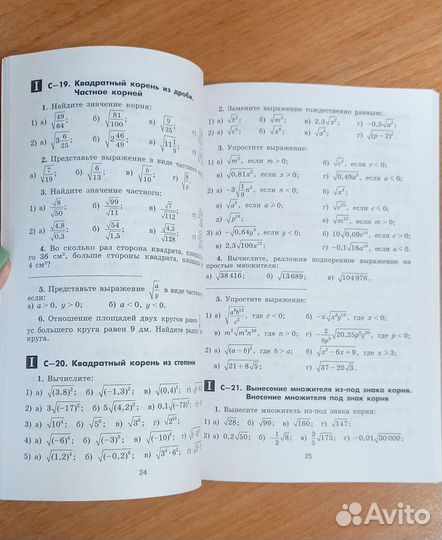 I С—19. Квадратный корень из дроби.
Частное корней
1. Найдите значение корня:
1) а) √(49/64); б) √(81/100); в) √(9/25);
2) а) √(3 6/25); б) √(2 46/49); в) √(11 1/9);
2. Представьте выражение в виде частного
а) √(7/19); б) √(6/13); в) √(b/10); г) √(8/y)
3. Найдите значение частного:
1) а) √8/√50; б) √99/√11; в) √7/√112;
2) а) √4,8/√0,3; б) √54/√1,5; в) √4,5/√128;
4. Во сколько раз сторона квадрата, площадь
го 36 см², больше стороны квадрата, площадь
4 см²?
5. Представьте выражение √(a/y) в виде частного
если:
а) a > 0, y > 0; б) a < 0, y < 0.
6. Отношение площадей двух кругов равно
ус большего круга равен 9 дм. Найдите радиус
круга.
I С—20. Квадратный корень из степени
1. Вычислите:
1) а) √(3,8)²; б) √(−1,3)²; в) √(0,4)²;
2) а) 3√(−17)²; б) 5√(4,2)²; в) 0,1√(−72)²;
3) а) √10⁴; б) √5⁶; в) √3⁸; г) √2¹⁰;
4) а) √(−6)⁴; б) √(−3)⁶; в) √(−2)⁸;
5) а) √(1,2)⁴; б) √(−0,2)⁶; в) √3⁴·6²;
24
2. Замените выражение тождественно равным:
1) а) √b²; б) √m²; в) 2,3√x²; г) −0,5√a²;
2) а) √c⁴; б) √x⁶; в) √a⁸; г) √(p − 2)².
3. Упростите выражение:
1) а) √m², если m > 0; б) √c², если c < 0;
в) √0,81x², если x > 0; г) √0,49a², если a ≤ 0;
2) а) −3√(1/9 n²), если n < 0; б) √x⁴;
в) √a⁶, если a ⩾ 0; г) √c¹⁰, если c < 0;
д) √p¹⁴; е) √m²², если m > 0;
3) а) −√0,64y⁶, если y < 0; б) 10√0,09c¹⁴, если c < 0;
в) 2,3√100x¹²; г) −0,1√16a¹⁸, если a < 0.
4. Вычислите, разложив подкоренное выражение на
простые множители:
а) √38 416; б) √13 689; в) √104 976.
5. Упростите выражение:
б) −x√y⁸x¹⁴, где x < 0;
где p < 0;
д) √(a − b)², где b > a; е) √x² − 6x + 9, где x > 3;
ж) √21 + 8√5; з) √37 − 20√3.
I С—21. Вынесение множителя из-под знака корня.
Внесение множителя под знак корня
1. Вынесите множитель из-под знака корня:
1) а) √28; б) √99; в) √160; г) √147;
2) а) 0,2√50; б) −1/2√8; в) 3/5√175; г) −0,01√30 000;
25
Avito